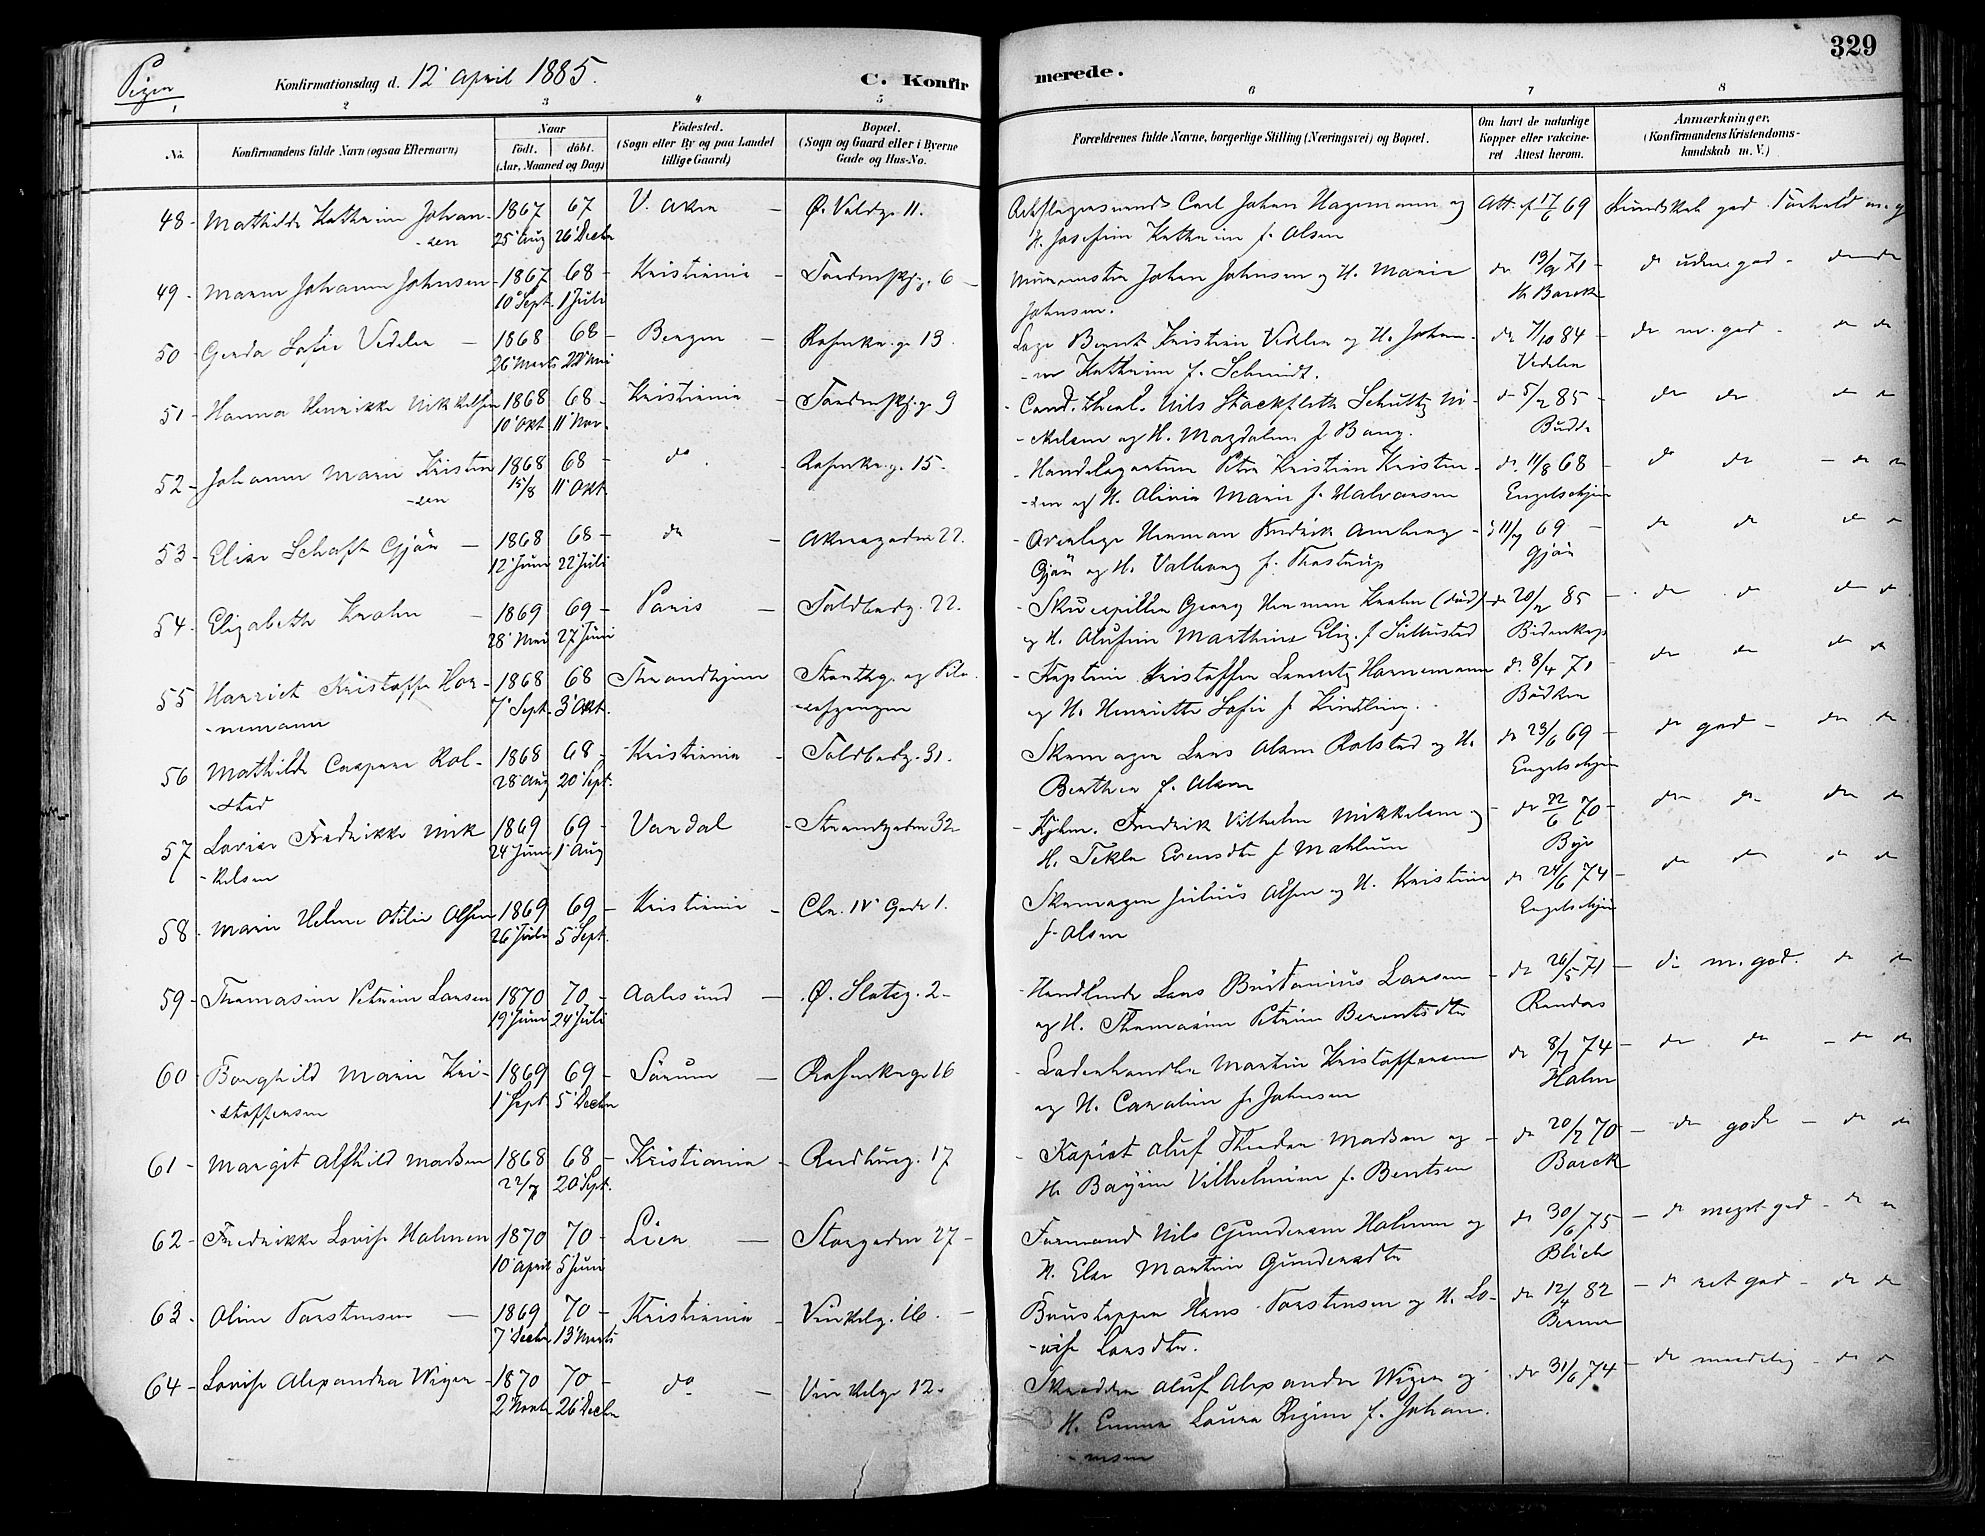 329
Piger
Konfirmationsdag d. 12' april 1885.
C. Konfirmerede.
1 2 3 4 5 6 7 8
No.
Konfirmandens fulde Navn (ogsaa Efternavn)
Naar
født. døbt.
(Aar, Maaned og Dag)
Fødested.
(Sogn eller By og paa Landet
tillige Gaard)
Bopæl.
(Sogn og Gaard eller i Byerne
Gade og Hus-No.
Forældrenes fulde Navne, borgerlige Stilling (Næringsvei) og Bopæl.
Om havt de naturlige
Kopper eller vakcine-
ret Attest herom.
Anmærkninger.
(Konfirmandens Kristendoms-
kundskab m. V.)
48 - Mathilde Kathrine Johan- 1867 67 V. Aker - Ø. Voldg. 11. Carl Johan Hagemann og Att. af 17/6 69 Kundskab god. Forhold m. g
-sen 25' Aug 26' Decbr H. Josefine Kathrine f. Olsen
49 - Marie Johanne Johnsen - 1867 68 - Kristiania - Tordenskj.g. 6 - Murmester Johan Johnsen og H. Marie do 13/9 71 - do udm. god - do do
10' Sept. 1' Juli Johnsen. Barck
50 - Gerda Sofie Vedeler - 1868 68 - Bergen - Rosenkr.g. 13. Læge Bernt Kristian Vedeler og H. Johan- do 7/10 84 - do m. god - do do
26' Marts 22' Mai -ne Kathrine f. Schmidt. Vedeler
51 - Hanna Henrikke Nikkelsen 1868 68 - Kristiania - Tordenskj.g. 9 - Cand. theol. Nils Stockfleth Schultz Ni- do 5/2 85 - do do do do
10' Okt 11' Nov. -kelsen og H. Magdalene f. Bang. Budde
52 - Johanne Marie Kristen 1868 68 - do. - Rosenkr.g. 15. - Handelsgartner Peter Kristian Kristen- do. 11/8 68 - do do - do do
-sen 15/8 11' Okt -sen og H. Olivia Marie f. Halvorsen Engelschjøn
53 - Elise Schaft Gjør - 1868 68 - do - Akersgaden 22. - Overlæge Herman Fredrik Gjør og H. Valborg f. Thostrup 11/9 69 - do do do do
12' Juni 22' Juli Gjør
54 - Elizabeth Krohn - 1869 69 - Paris - Toldbodg. 22. - Skuespiller Georg Herman Krohn (død) - do 20/2 85 - do do do do
28' Mai 27' Juni og H. Olufine Marthine Eliz. f.
55 Henriet Kristoffa Hor- 1868 68 Throndhjem Storthg. og Pile- - Kaptein Kristoffer Lorentz Hornemann do. 8/4 71 - do do do do
-nemann 7' Sept. 3' Okt. og H. Henriette Sofie f. Kindling.
56 Mathilde Caspara Rol- 1868 68 - Kristiania - Toldbodg. 31. Skomager Lars Olsen Rolstad og H. do 23/6 69 - do god - do do
-stad 28' Aug 20' Sept. Berthea f. Olsen Engelschjøn
57 - Lovise Fredrikke Mik 1869 69 - Vardal - Strandgaden 32 - Kjbm. Fredrik Vilhelm Mikkelsen og - do 22/6 70 - do do do do
-kelsen 24' Juni 1' Aug H. Tekla Evensdtr f. Mæhlum
58 - Marie Helene Otilie Olsen 1869 69 - Kristiania - Chr. IV' Gade 1. Skomager Julius Olsen og H. Kristine do 24/6 74 - do do do do
26' Juli 5' Sept. f. Olsen Engelschjøn
59 - Thomasine Petrine Larsen 1870 70 - Aalesund - Ø. Slotsg. 2 - - Handlende Lars Larsen - do 26/5 71 - do m. god. do do
19' Juni 24' Juli og H. Thomasine Petrine Berentsdtr Randers
60 - Borghild Marie Kri- 1869 69 - Sørum - Rosenkr.g. 16 - Ladenhandler Martin Kristoffersen do 8/7 74 - do do - do do
-stoffersen 1' Sept 5' Decbr og H. Caroline f. Johnsen Holm
61 - Margit Alfhild Madsen 1868 68 - Kristiania - Raadhusg. 17 - Kopist Oluf Theodor Madsen og - do 20/2 70 - do gode - do do
22/7 20 Sept. H. Vilhelmine f. Berntsen Barck
62 - Fredrikke Lovise Holmen 1870 70 - Lier - Storgaden 27 - Formand Nils Gundersen Holmen og do 30/6 75 - do meget god - do
10' april 5' Juni H. Else Martine Gundersdtr Blich
63 - Oline Torstensen - 1869 70 - Kristiania - Vinkelg. 16. - Brustapper Hans Torstensen og H. Lo- do 12/4 82 - do ret god - do do
7' Decbr 13' Marts -vise Larsdtr.
64 - Lovise Alexandra Wiger - 1870 70 - do - Vinkelg. 12. Skrædder Oluf Alexander Wiger og do 31/6 74 - do maadelig - do do
26' Decbr H. Emma Laura f. Johan-
-nesen